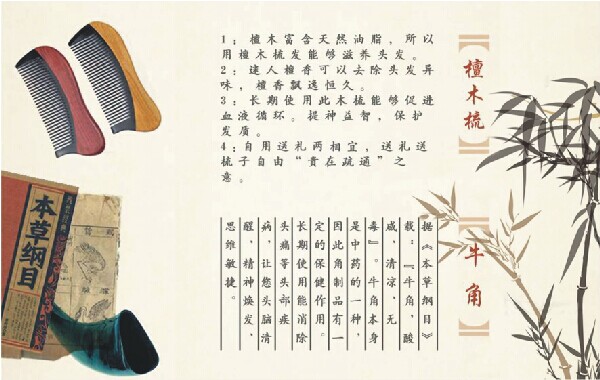 【檀木梳】
1；檀木富含天然油脂，所以
用檀木梳发能够滋养头发。
2；迷人檀香可以去除头发异
味，檀香飘逸恒久。
3；长期使用此木梳能够促进
血液循环。提神益智，保护
发质。
4；自用送礼两相宜，送礼送
梳子自由“贵在疏通”之
意。
【牛角】
据《本草纲目》
载：『牛角，酸
咸，清凉，无
毒』。牛角本身
是中药的一种，
因此角制品有一
定的保健作用。
长期使用能消除
头痛等头部疾
病，让您头脑清
醒，精神焕发，
思维敏捷。
本草纲目